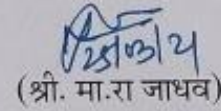 (श्री. मा.रा जाधव)